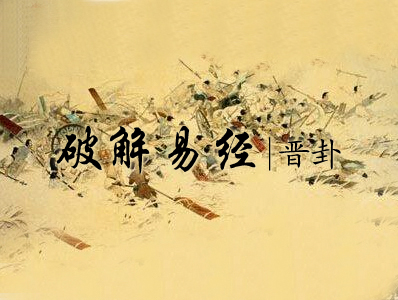 破解易经|晋卦